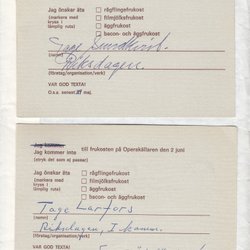 Jag önskar äta □ rågflingefrukost
(markera med □ filmjölksfrukost
kryss i
lämplig ruta) □ äggfrukost
□ bacon- och äggfrukost
Tage Sundkvist
Riksdagen
(företag/organisation/verk)
VAR GOD TEXTA!
O.s.a. senast maj.
Jag kommer
Jag kommer inte till frukosten på Operakällaren den 2 juni
(stryk det som ej passar)
Jag önskar äta □ rågflingefrukost
(markera med □ filmjölksfrukost
kryss i
lämplig ruta) □ äggfrukost
□ bacon- och äggfrukost
Tage Larfors
Riksdagen, I kamm.
(företag/organisation/verk)
VAR GOD TEXTA!